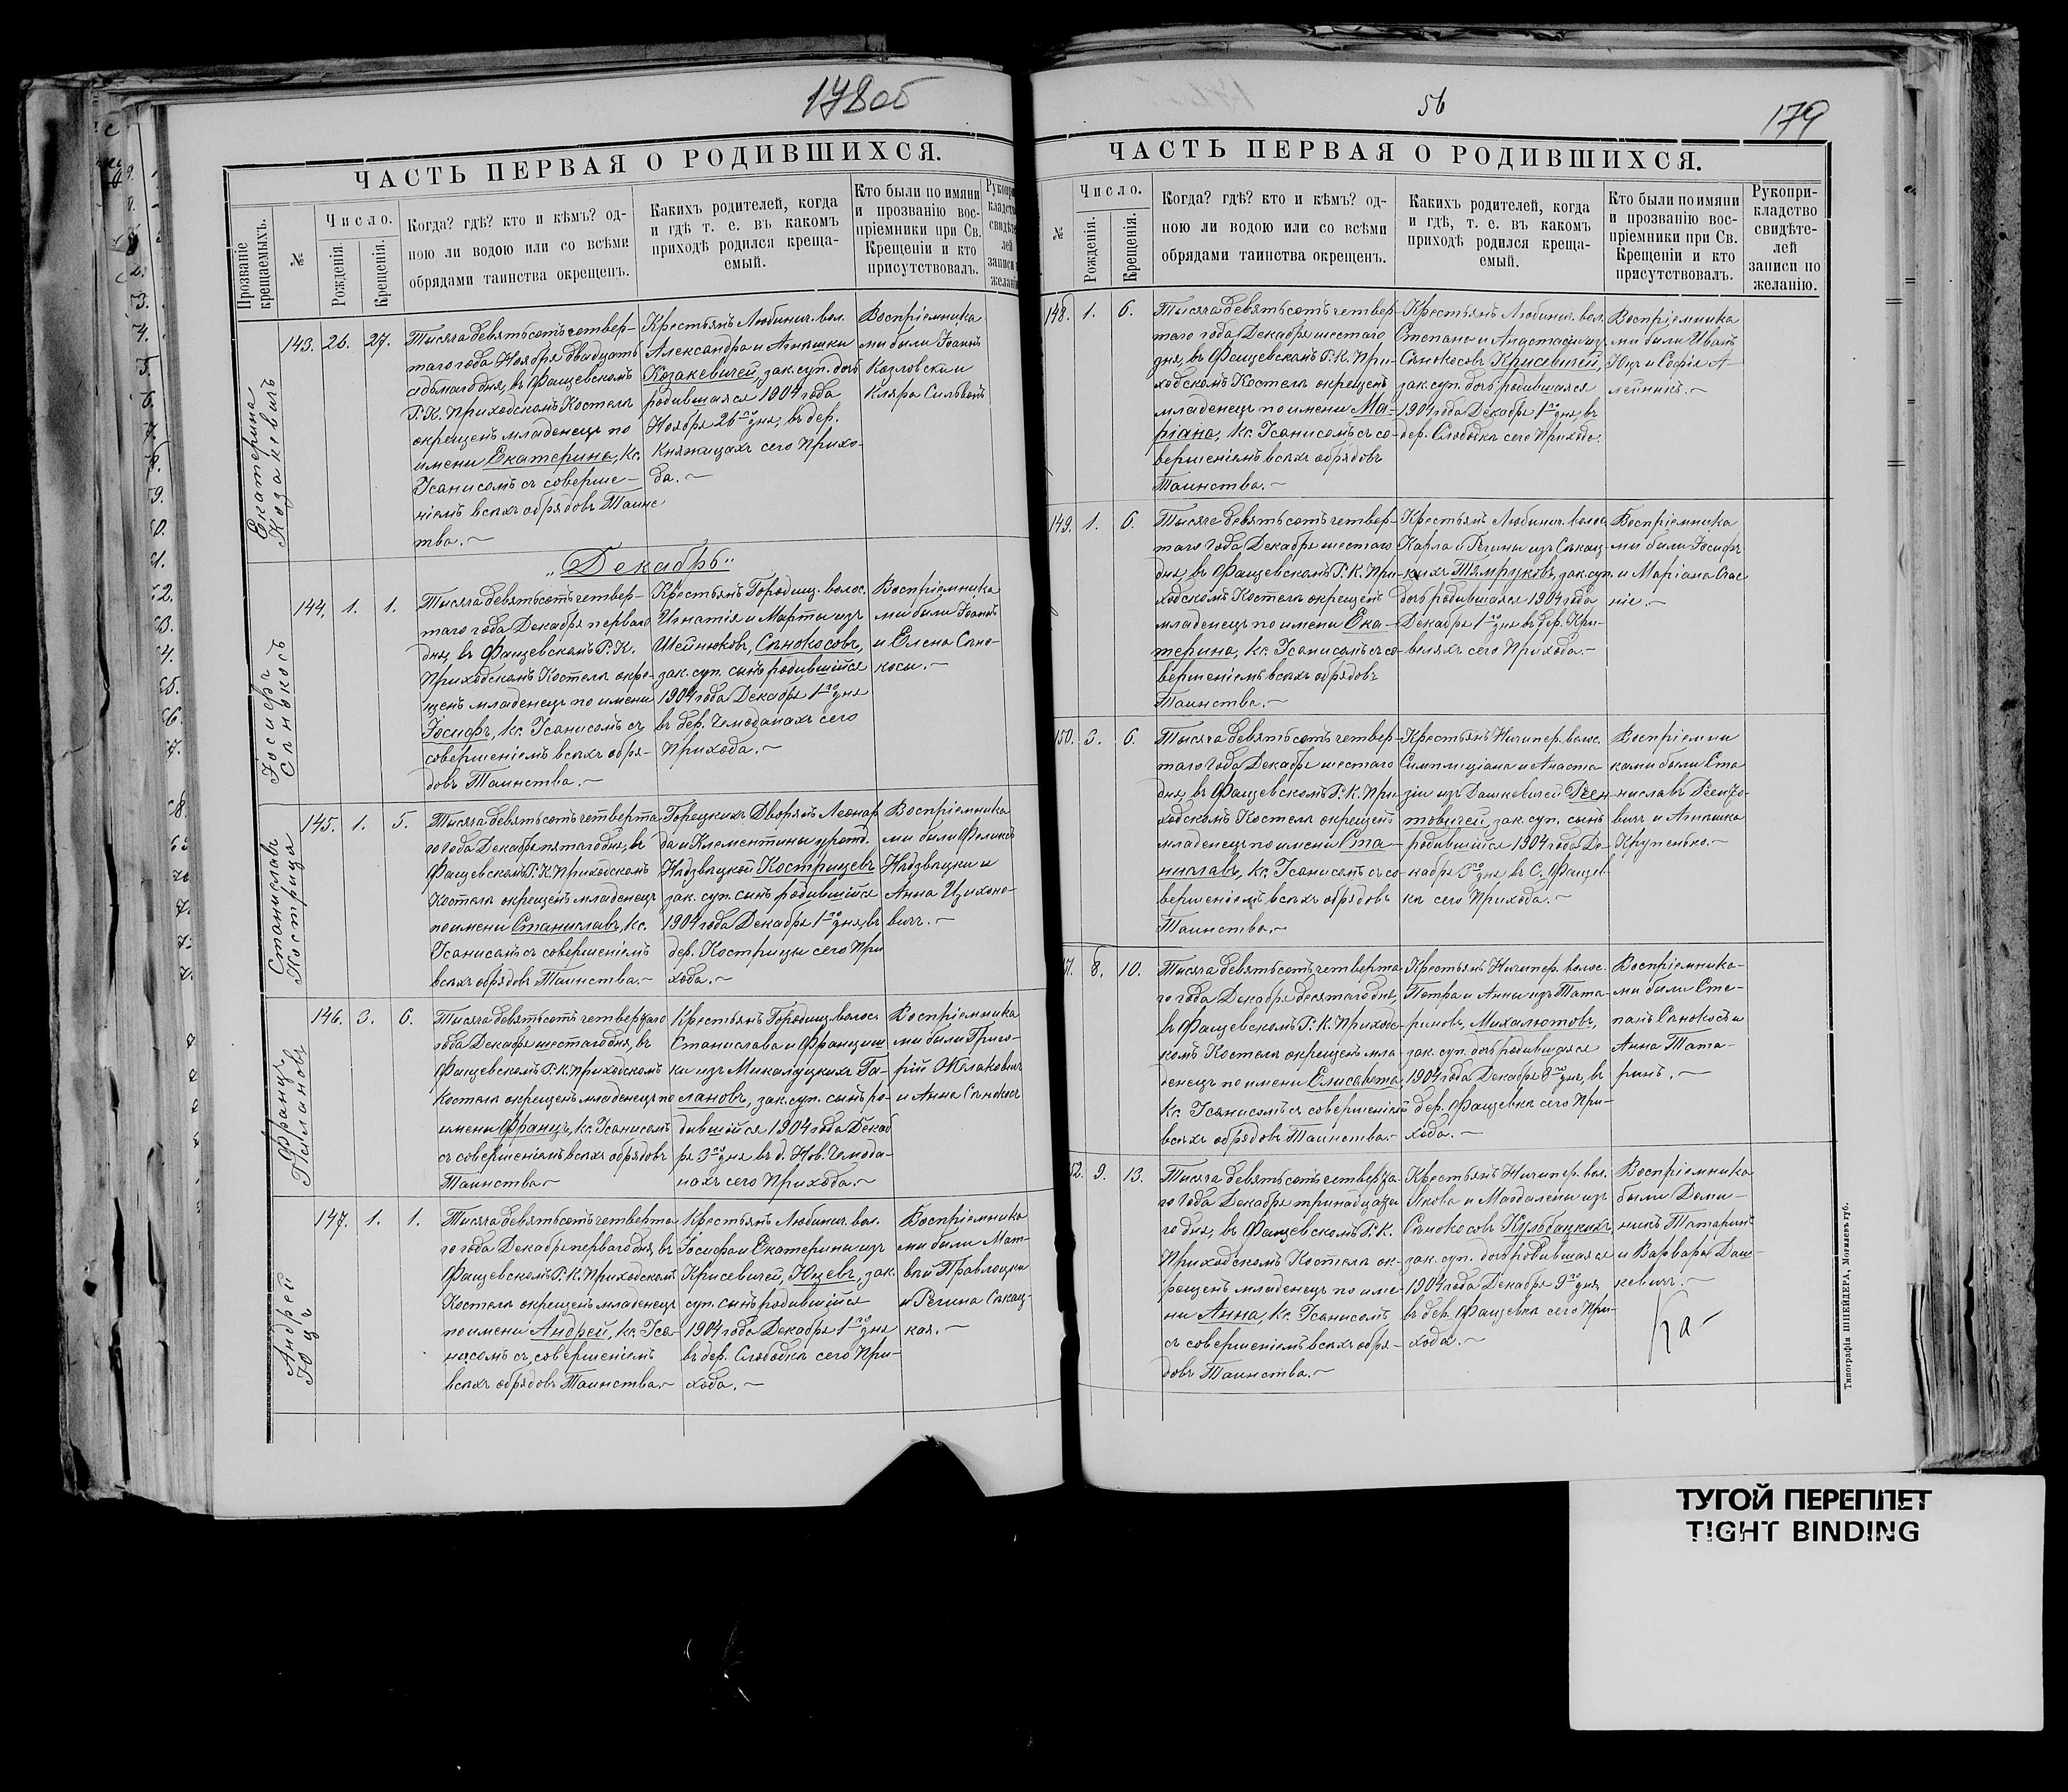 178об
ЧАСТЬ ПЕРВАЯ О РОДИВШИХСЯ.
Прозваніе крещаемыхъ.
№
Число.
Рожденія.
Крещенія.
Когда? гдѣ? кто и кѣмъ? од-
ною ли водою или со всѣми
обрядами таинства окрещенъ.
Какихъ родителей, когда
и гдѣ т. е. въ какомъ
приходѣ родился креща-
емый.
Кто были по имяни
и прозванію вос-
пріемники при Св.
Крещеніи и кто
присутствовалъ.
Екатерина
Козакевичъ
143. 26. 27.
Тысяча девятьсотъ четвер-
таго года Ноября двадцать
седьмаго дня, въ Фащевскомъ
Р. К. Приходскомъ Костелѣ
окрещенъ младенецъ по
имени Екатерина, Кс.
Усанисомъ съ соверше-
ніемъ всѣхъ обрядовъ Таинс
тва.~
Крестьянъ Любинич. вол.
Александра и Агнѣшки
Козакевичей, зак. суп. дочь
родившаяся 1904 года
Ноября 26го дня, въ дер.
Княжицахъ сего Прихо-
да.~
Воспріемника
ми были Іоаннъ
Козловскій и
Кляра Сильвон
„Декабрь“
Іосифъ
Сѣнокосъ
144. 1. 1.
Тысяча девятьсотъ четвер-
таго года Декабря перваго
дня, въ Фащевскомъ Р. К.
Приходскомъ Костелѣ окре-
щенъ младенецъ по имени
Іосифъ, Кс. Усанисомъ съ
совершеніемъ всѣхъ обря-
довъ Таинства.~
Крестьянъ Городищ. волос.
Игнатія и Марты изъ
Шейнюковъ, Сѣнокосовъ,
зак. суп. сынъ родившійся
1904 года Декабря 1го дня
въ дер. Чемоданахъ сего
Прихода.~
Воспріемника
ми были Іоаннъ
и Елена Сѣно-
косы.~
Станиславъ
Кострица
145. 1. 5.
Тысяча девятьсотъ четверта
го года Декабря пятаго дня, въ
Фащевскомъ Р. К. Приходскомъ
Костелѣ окрещенъ младенецъ
по имени Станиславъ, Кс.
Усанисомъ съ совершеніемъ
всѣхъ обрядовъ Таинства.~
Горецкихъ Дворянъ Леонар
да и Клементины урожд.
Нѣдзвецкой Кострицевъ
зак. суп. сынъ родившійся
1904 года Декабря 1го дня, въ
дер. Кострицы сего При
хода.~
Воспріемника
ми были Феликсъ
Нѣдзвецкій и
Анна Цихоно-
вичъ.~
Францъ
Галановъ
146. 3. 6.
Тысяча девятьсотъ четвертаго
года Декабря шестаго дня, въ
Фащевскомъ Р. К. Приходскомъ
Костелѣ окрещенъ младенецъ по
имени Францъ, Кс. Усанисомъ
съ совершеніемъ всѣхъ обрядовъ
Таинства~
Крестьянъ Городищ. волос.
Станислава и Франциш
ки изъ Микалуцкихъ Га-
лановъ, зак. суп. сынъ ро-
дившійся 1904 года Декаб
ря 3го дня въ д. Нов. Чемода-
нахъ сего Прихода.~
Воспріемника
ми были Григо-
рій Желаковичъ
и Анна Сѣнокосъ
Андрей
Юцъ
147. 1. 1.
Тысяча девятьсотъ четверта
го года Декабря перваго дня, въ
Фащевскомъ Р. К. Приходскомъ
Костелѣ окрещенъ младенецъ
по имени Андрей, Кс. Уса-
нисомъ съ совершеніемъ
всѣхъ обрядовъ Таинства.~
Крестьянъ Любинич. вол.
Іосифа и Екатерины изъ
Крисевичей, Юцевъ, зак.
суп. сынъ родившійся
1904 года Декабря 1го дня
въ дер. Слободкѣ сего При-
хода.~
Воспріемника
ми были Мат-
вѣй Правлоцки
и Регина Сѣкац-
кая.~
56
179
ЧАСТЬ ПЕРВАЯ О РОДИВШИХСЯ.
№
Число.
Рожденія.
Крещенія.
Когда? гдѣ? кто и кѣмъ? од-
ною ли водою или со всѣми
обрядами таинства окрещенъ.
Какихъ родителей, когда
и гдѣ, т. е. въ какомъ
приходѣ родился креща-
емый.
Кто были по имяни
и прозванію вос-
пріемники при Св.
Крещеніи и кто
присутствовалъ.
Рукопри-
кладство
свидѣте-
лей
записи по
желанію.
148. 1. 6.
Тысяча девятьсотъ четвер-
таго года Декабря шестаго
дня, въ Фащевскомъ Р. К. При-
ходскомъ Костелѣ окрещенъ
младенецъ по имени Ма-
ріана, Кс. Усанисомъ съ со-
вершеніемъ всѣхъ обрядовъ
Таинства.~
Крестьянъ Любинич. вол.
Степана и Анастасіи изъ
Сѣнокосовъ Крисевичей,
зак. суп. дочь родившаяся
1904 года Декабря 1го дня, въ
дер. Слободкѣ сего Прихода.
Воспріемника
ми были Иванъ
Юцъ и Софія А-
лейникъ.~
149. 1. 6.
Тысяча девятьсотъ четвер-
таго года Декабря шестаго
дня, въ Фащевскомъ Р. К. При-
ходскомъ Костелѣ окрещенъ
младенецъ по имени Ека-
терина, Кс. Усанисомъ съ со-
вершеніемъ всѣхъ обрядовъ
Таинства.~
Крестьянъ Любинич. волос.
Карла и Регины изъ Сѣкац-
кихъ Тямруковъ, зак. суп.
дочь родившаяся 1904 года
Декабря 1го дня въ дер. Кри-
веляхъ сего Прихода.~
Воспріемника
ми были Іосифъ
и Маріана Стас
ніс.~
150. 3. 6.
Тысяча девятьсотъ четвер-
таго года Декабря шестаго
дня, въ Фащевскомъ Р. К. При
ходскомъ Костелѣ окрещенъ
младенецъ по имени Ста-
ниславъ, Кс. Усанисомъ съ со-
вершеніемъ всѣхъ обрядовъ
Таинства.~
Крестьянъ Ничипер. волос.
Симплиціана и Анаста
зіи изъ Дашкевичей Рцен
товичей, зак. суп. сынъ
родившійся 1904 года Де-
кабря 3го дня въ С. Фащев
кѣ сего Прихода.~
Воспріемни
ками были Ста
ниславъ
вичъ и Агнѣшка
Крупенько.~
8. 10.
Тысяча девятьсотъ четверта
го года Декабря десятаго дня,
въ Фащевскомъ Р. К. Приходс-
комъ Костелѣ окрещенъ мла-
денецъ по имени Елисавета,
Кс. Усанисомъ съ совершеніемъ
всѣхъ обрядовъ Таинства.~
Крестьянъ Ничипер. волос.
Петра и Анны изъ Тата-
риновъ, Михалютовъ,
зак. суп. дочь родившаяся
1904 года Декабря 8го дня, въ
дер. Фащевкѣ сего При-
хода.~
Воспріемника-
ми были Сте-
панъ Сѣнокосъ и
Анна Тата-
ринъ.~
52. 9. 13.
Тысяча девятьсотъ четверта
го года Декабря тринадцата
го дня, въ Фащевскомъ Р. К.
Приходскомъ Костелѣ ок-
рещенъ младенецъ по име
ни Анна, Кс. Усанисомъ,
съ совершеніемъ всѣхъ обря-
довъ Таинства.~
Крестьянъ Ничипер. вол.
Якова и Магдалены изъ
Сѣнокосовъ Кульбацкихъ,
зак. суп. дочь родившаяся
1904 года Декабря 9го дня,
въ дер. Фащевкѣ сего При-
хода.~
Воспріемника
были Доми-
никъ Татаринъ
и Варвара Даш-
кевичъ.~
Типографія ШНЕЙДЕРА, Могилевъ губ.
ТУГОЙ ПЕРЕПЛЕТ
TIGHT BINDING